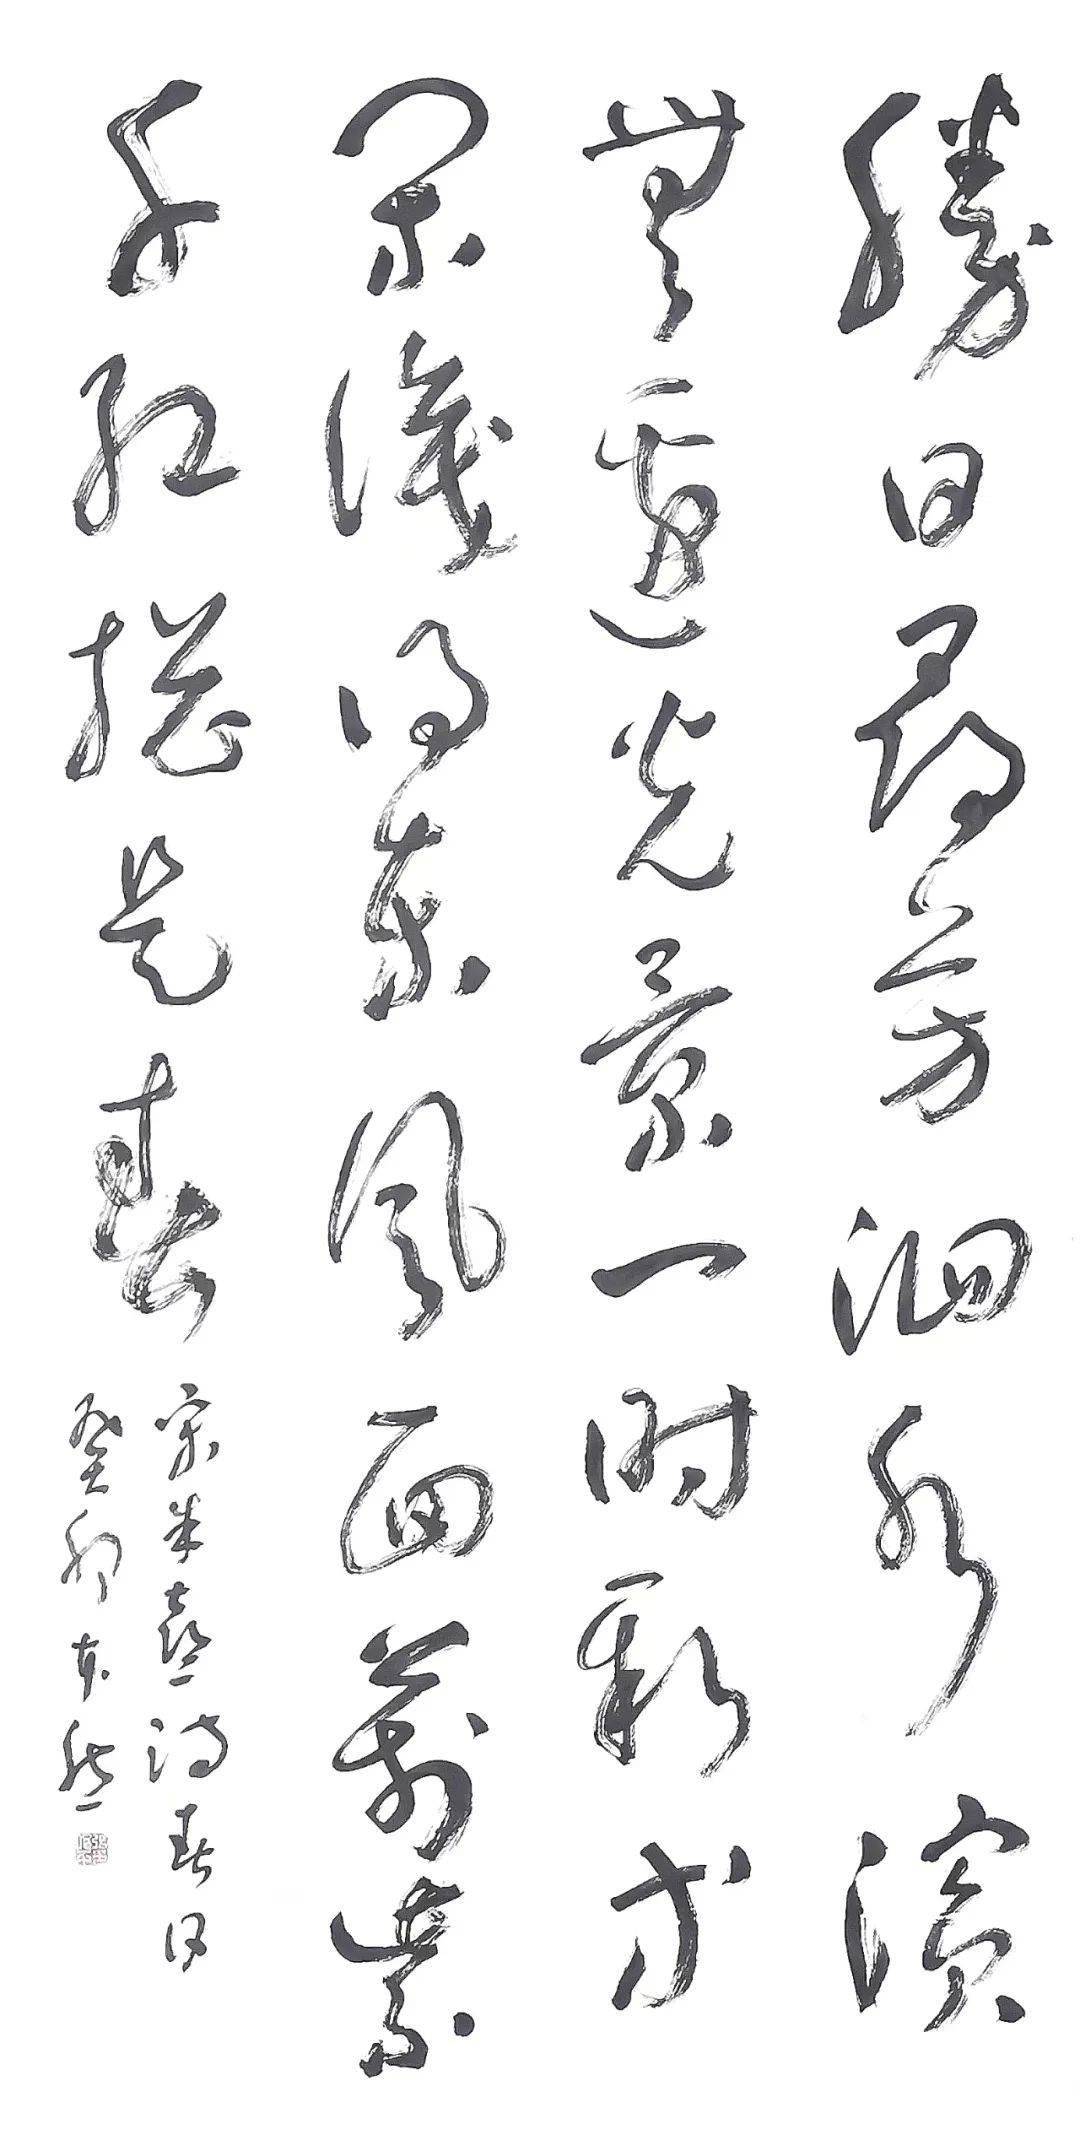 勝日尋芳泗水濱
無邊光景一時新等
閑識得東風面萬紫
千紅捴是春
宋朱熹詩春日
癸卯